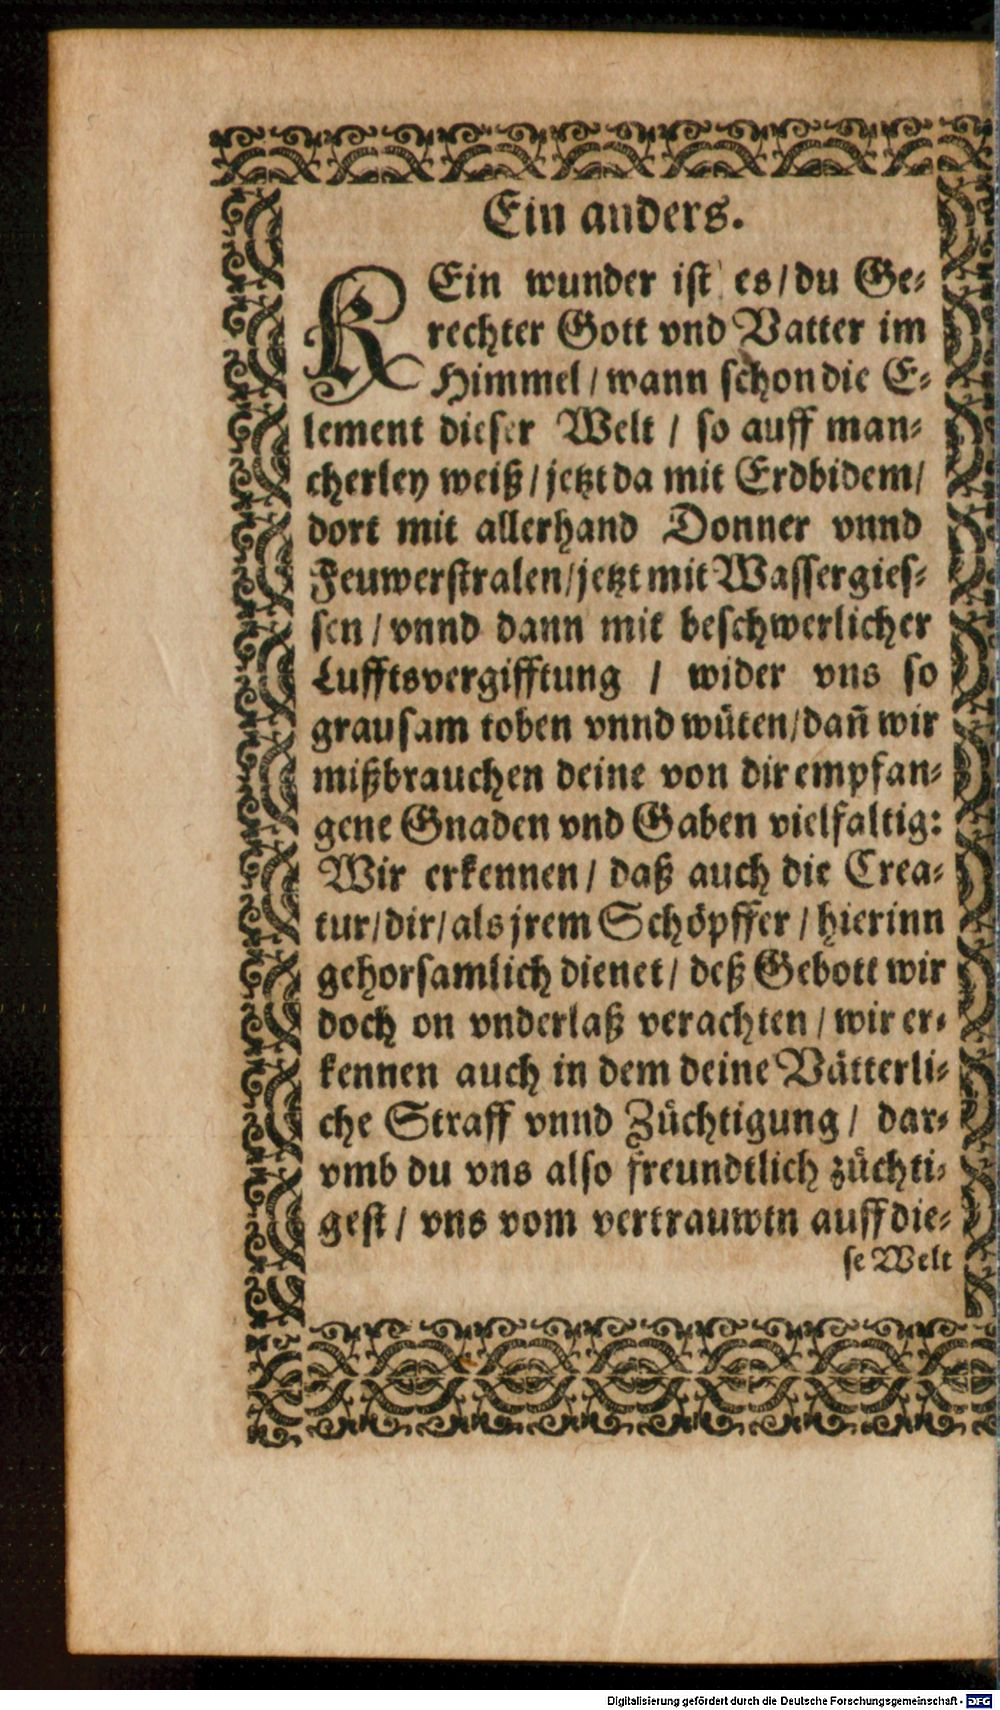 Ein anders.
KEin wunder ist es/du Ge-
rechter Gott vnd Vatter im
Himmel/wann schon die E-
lement dieser Welt / so auff man-
cherley weiß/jetzt da mit Erdbidem/
dort mit allerhand Donner vnnd
Feuwerstralen/jetzt mit Wassergies-
sen / vnnd dann mit beschwerlicher
Lufftsvergifftung / wider vns so
grausam toben vnnd wüten/dañ wir
mißbrauchen deine von dir empfan-
gene Gnaden vnd Gaben vielfaltig:
Wir erkennen/ daß auch die Crea-
tur/dir/als jrem Schöpffer / hierinn
gehorsamlich dienet/ deß Gebott wir
doch on vnderlaß verachten / wir er-
kennen auch in dem deine Vätterli-
che Straff vnnd Züchtigung / dar-
vmb du vns also freundtlich züchti-
gest / vns vom vertrauwen auff die-
se Welt
Digitalisierung gefördert durch die Deutsche Forschungsgemeinschaft - DFG